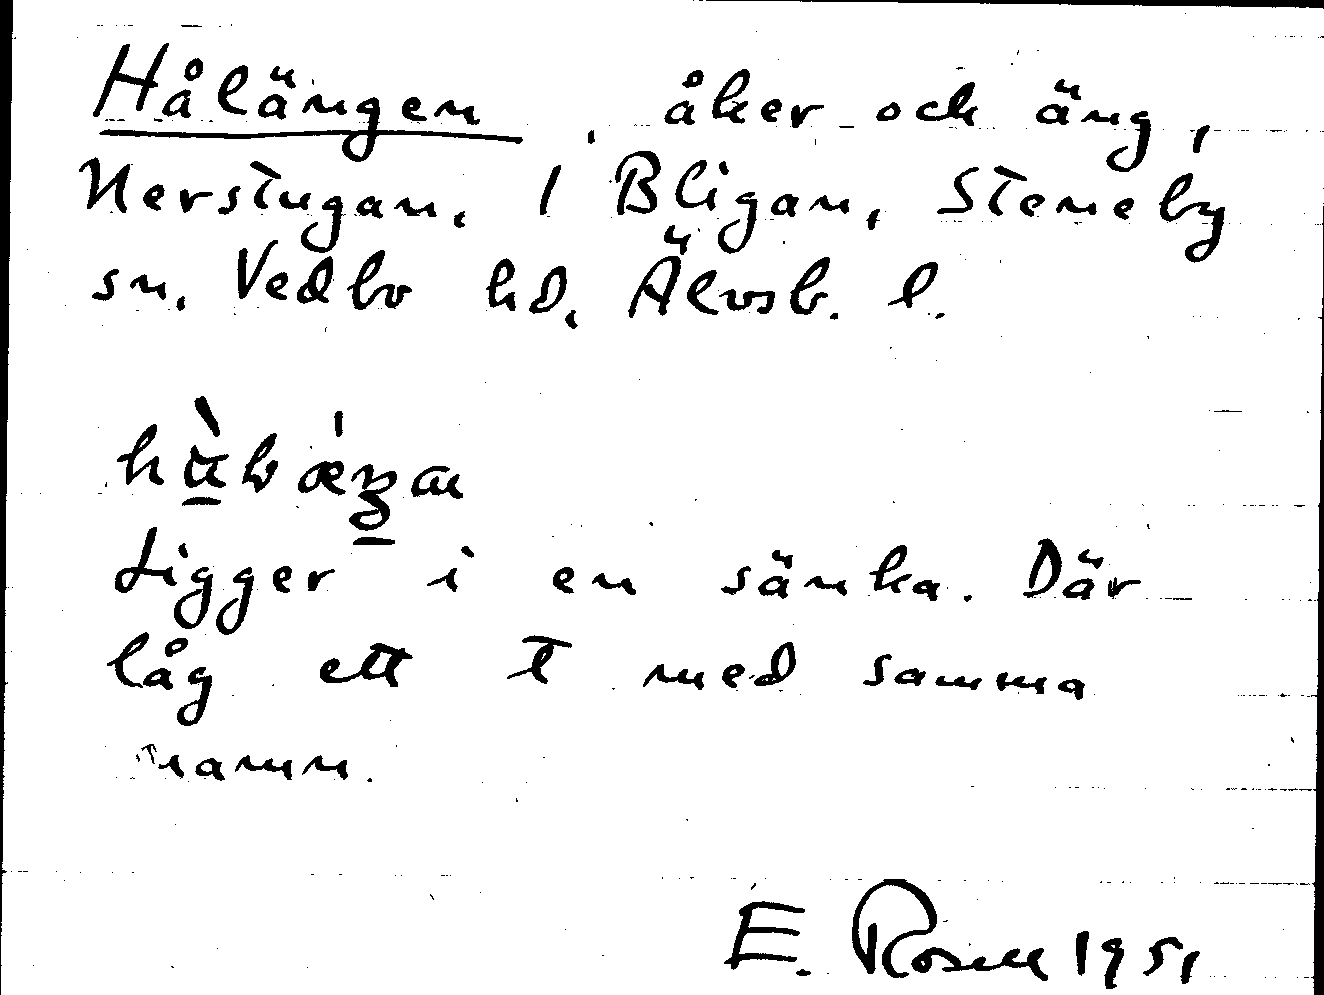 Hålängen, åker och äng,
Nerstugan, 1 Bligan, Steneby
sn, Vedbo hd, Älvsb. l.
Ligger i en sänka. Där
låg ett T med samma
namn.
E. Rosell 1951